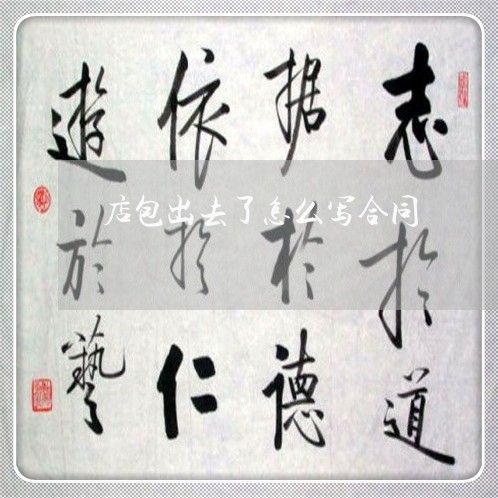 志於道
据於德
依於仁
遊於藝
店包出去了怎么写合同